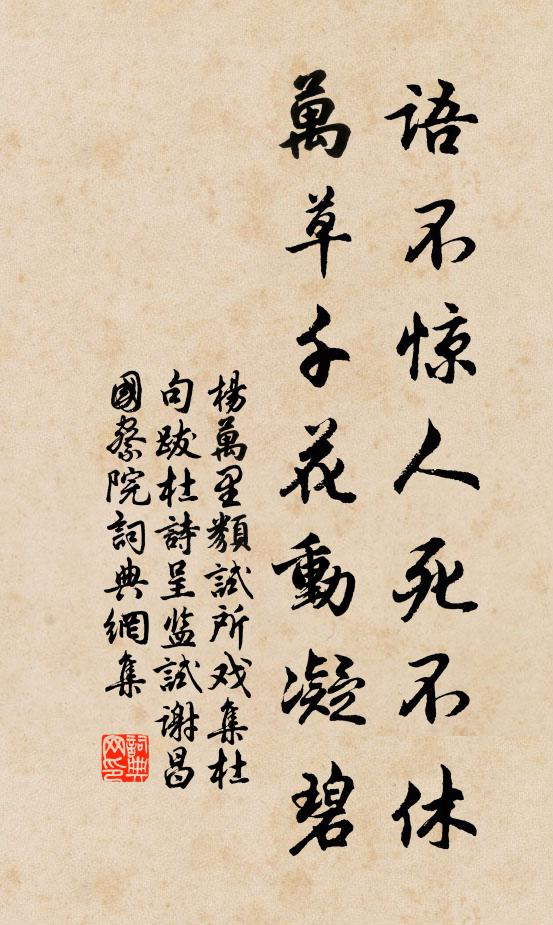 語不惊人死不休
萬草千花動凝碧
楊萬里類試所戏集杜
句跋杜詩呈监試謝昌
國察院詞典網集
詞典
网印